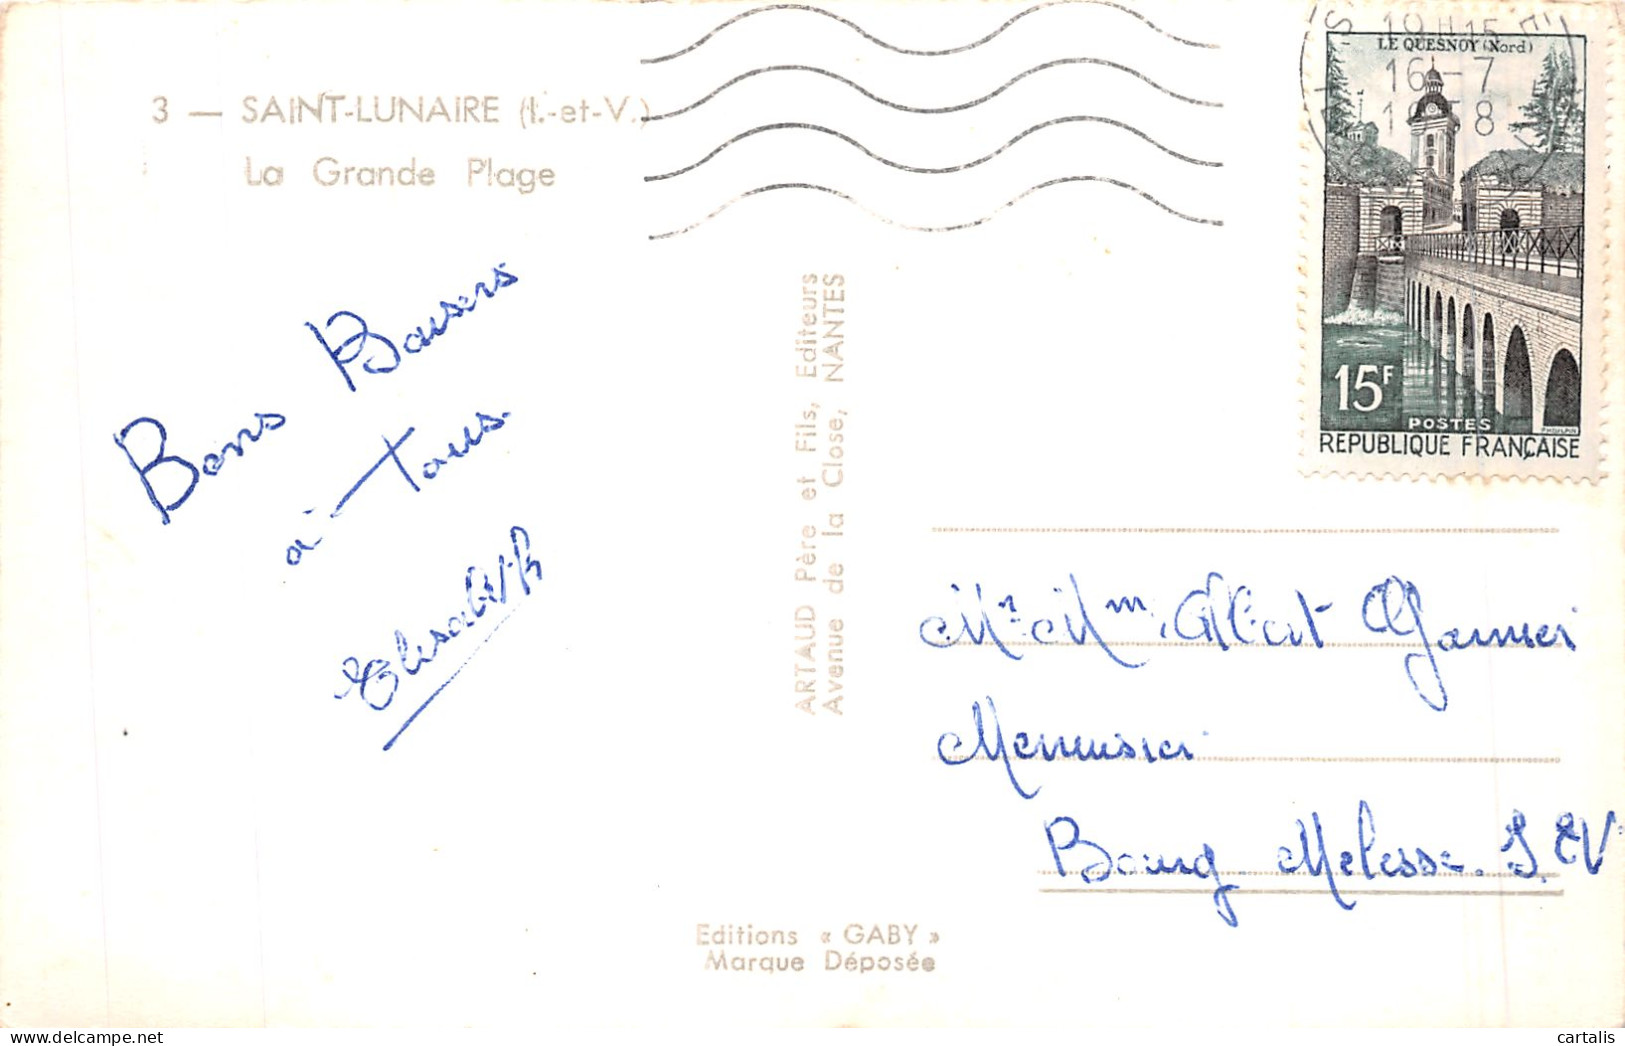 3 — SAINT-LUNAIRE (I.-et-V.)
La Grande Plage
Bons Baisers
à Tous.
Elisabeth
ARTAUD Père et Fils, Editeurs
Avenue de la Close, NANTES
Editions « GABY »
Marque Déposée
19 H 15
16 - 7
1958
LE QUESNOY (Nord)
15F
POSTES
REPUBLIQUE FRANÇAISE
Mr. Mme. Albert Garnier
Menuisier
Bourg. Melesse. I. et V
cartalis